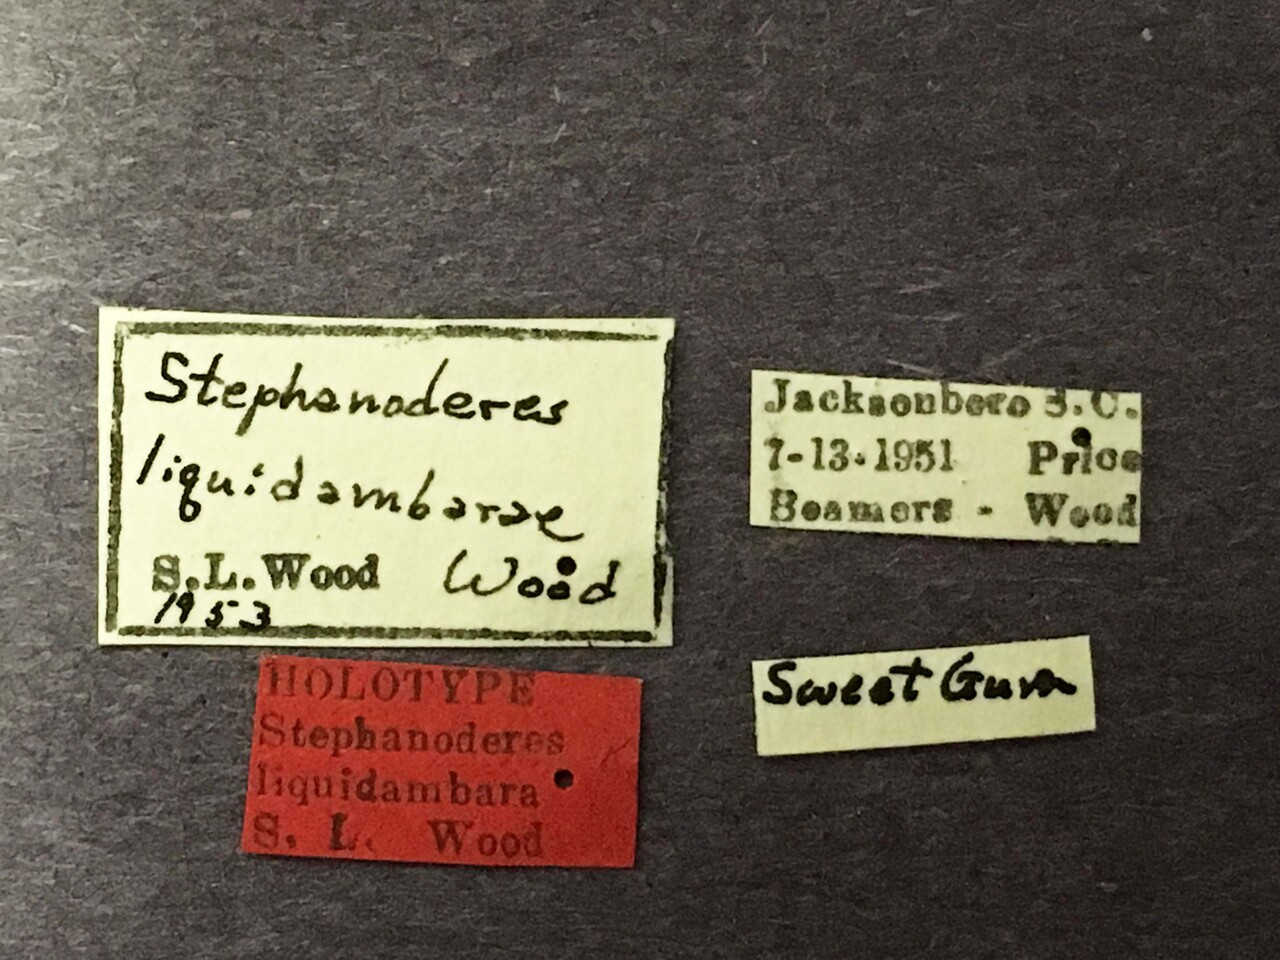 Stephanoderes
liquidambarae
S.L.Wood Wood
1953
HOLOTYPE
Stephanoderes
liquidambara
S. L. Wood
Jacksonboro S.C.
7-13-1951 Price
Beamers - Wood
Sweet Gum